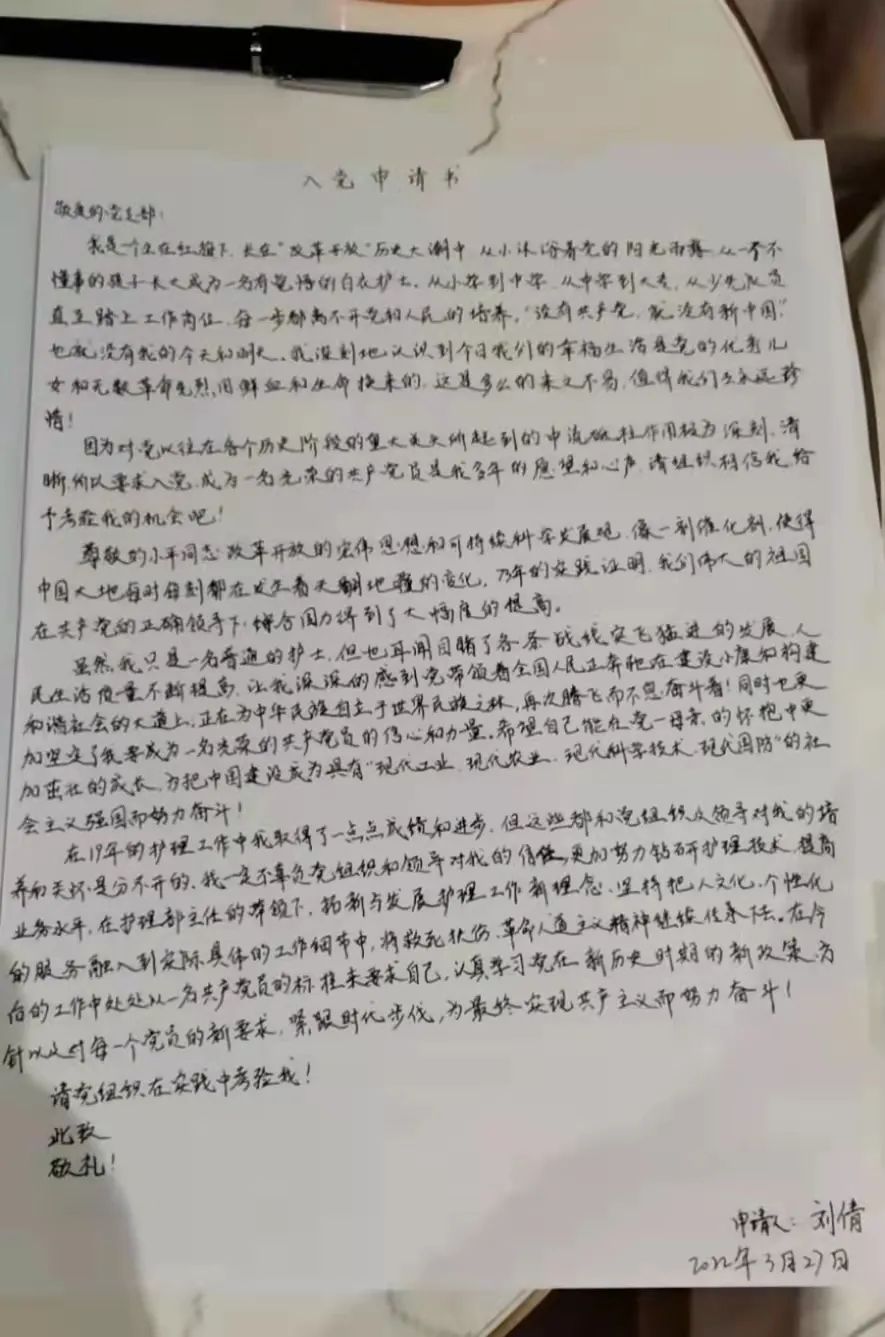 入党申请书
敬爱的党支部:
我是一个生在红旗下,长在"改革开放"历史大潮中,从小沐浴着党的阳光雨露,从一个不
懂事的孩子长大成为一名有觉悟的白衣护士。从小学到中学,从中学到大专,从少先队员
直至踏上工作岗位,每一步都离不开党和人民的培养,"没有共产党,就没有新中国",
也就没有我的今天和明天。我深刻地认识到今日我们的幸福生活是党的优秀儿
女和无数革命先烈,用鲜血和生命换来的,这是多么的来之不易,值得我们永远珍
惜!
因为对党以往在各个历史阶段的重大关头所起到的中流砥柱作用极为深刻,清
晰,所以要求入党,成为一名光荣的共产党员是我多年的愿望和心声,请组织相信我,给
予考验我的机会吧!
尊敬的小平同志改革开放的宏伟思想和可持续科学发展观,像一剂催化剂,使得
中国大地每时每刻都在发生着天翻地覆的变化,多年的实践证明,我们伟大的祖国
在共产党的正确领导下,综合国力得到了大幅度的提高。
虽然,我只是一名普通的护士,但也耳闻目睹了各条战线突飞猛进的发展,人
民生活质量不断提高,让我深深的感到党带领着全国人民正奔驰在建设小康和构建
和谐社会的大道上,正在为中华民族自立于世界民族之林,再次腾飞而不息奋斗着!同时也更
加坚定了我要成为一名光荣的共产党员的信心和力量。希望自己能在党—母亲的怀抱中更
加茁壮的成长,为把中国建设成为具有"现代工业、现代农业、现代科学技术、现代国防"的社
会主义强国而努力奋斗!
在19年的护理工作中我取得了一点点成绩和进步,但这些都和党组织及领导对我的培
养和关怀是分不开的,我一定不辜负党组织和领导对我的信任,更加努力钻研护理技术,提高
业务水平,在护理部主任的带领下,拓新与发展护理工作新理念,坚持把人文化,个性化
的服务融入到实际具体的工作细节中,将救死扶伤,革命人道主义精神继续传承下去。在今
后的工作中处处从一名共产党员的标准来要求自己,认真学习党在新历史时期的新政策、方
针以及对每一个党员的新要求,紧跟时代步伐,为最终实现共产主义而努力奋斗!
请党组织在实践中考验我!
此致
敬礼!
申请人:刘倩
2022年3月27日